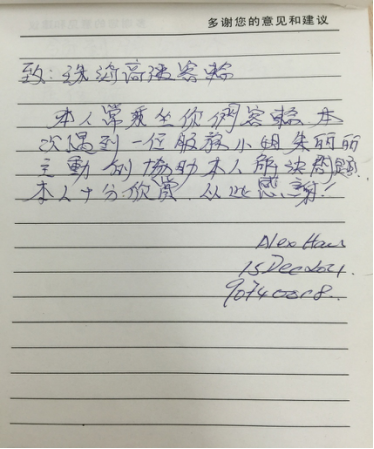 多谢您的意见和建议
致：珠海高速客轮
本人常乘坐你们客轮，本
次遇到一位服務小姐朱丽丽
主動的協助本人解決問題．
本人十分欣賞．从此感謝！
Alex
15 Dec